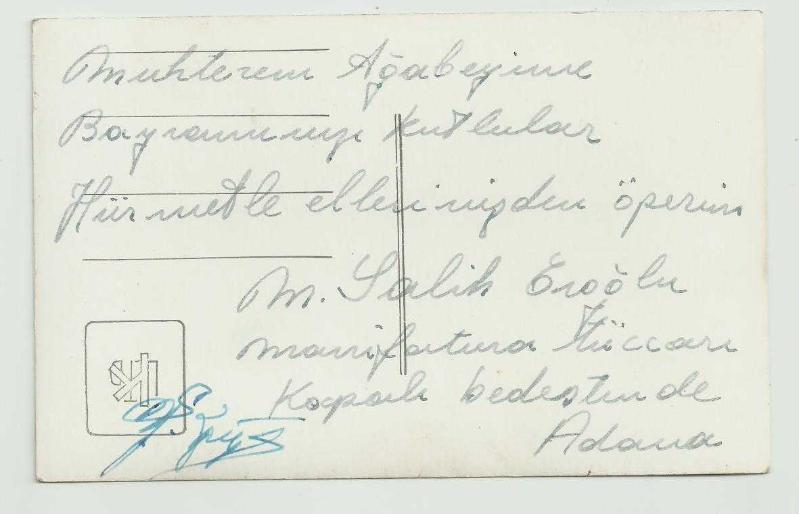 Muhterem Ağabeyime
Bayramınızı kutlular
Hürmetle ellerinizden öperim
M. Salih Eroğlu
Manifatura tüccarı
Kapalı bedestende
Adana